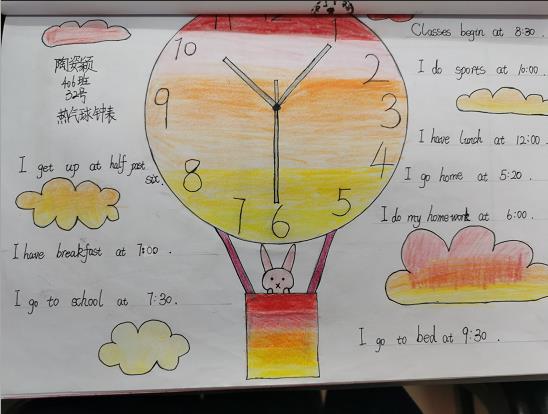 陶姿颖
406班
32号
热气球钟表
I get up at half past
six.
I have breakfast at 7:00 .
I go to school at 7:30 .
10
9
8
7
6
5
4
3
2
1
Classes begin at 8:30 .
I do sports at 10:00 .
I have lunch at 12:00 .
I go home at 5:20 .
I do my homework at 6:00 .
I go to bed at 9:30 .